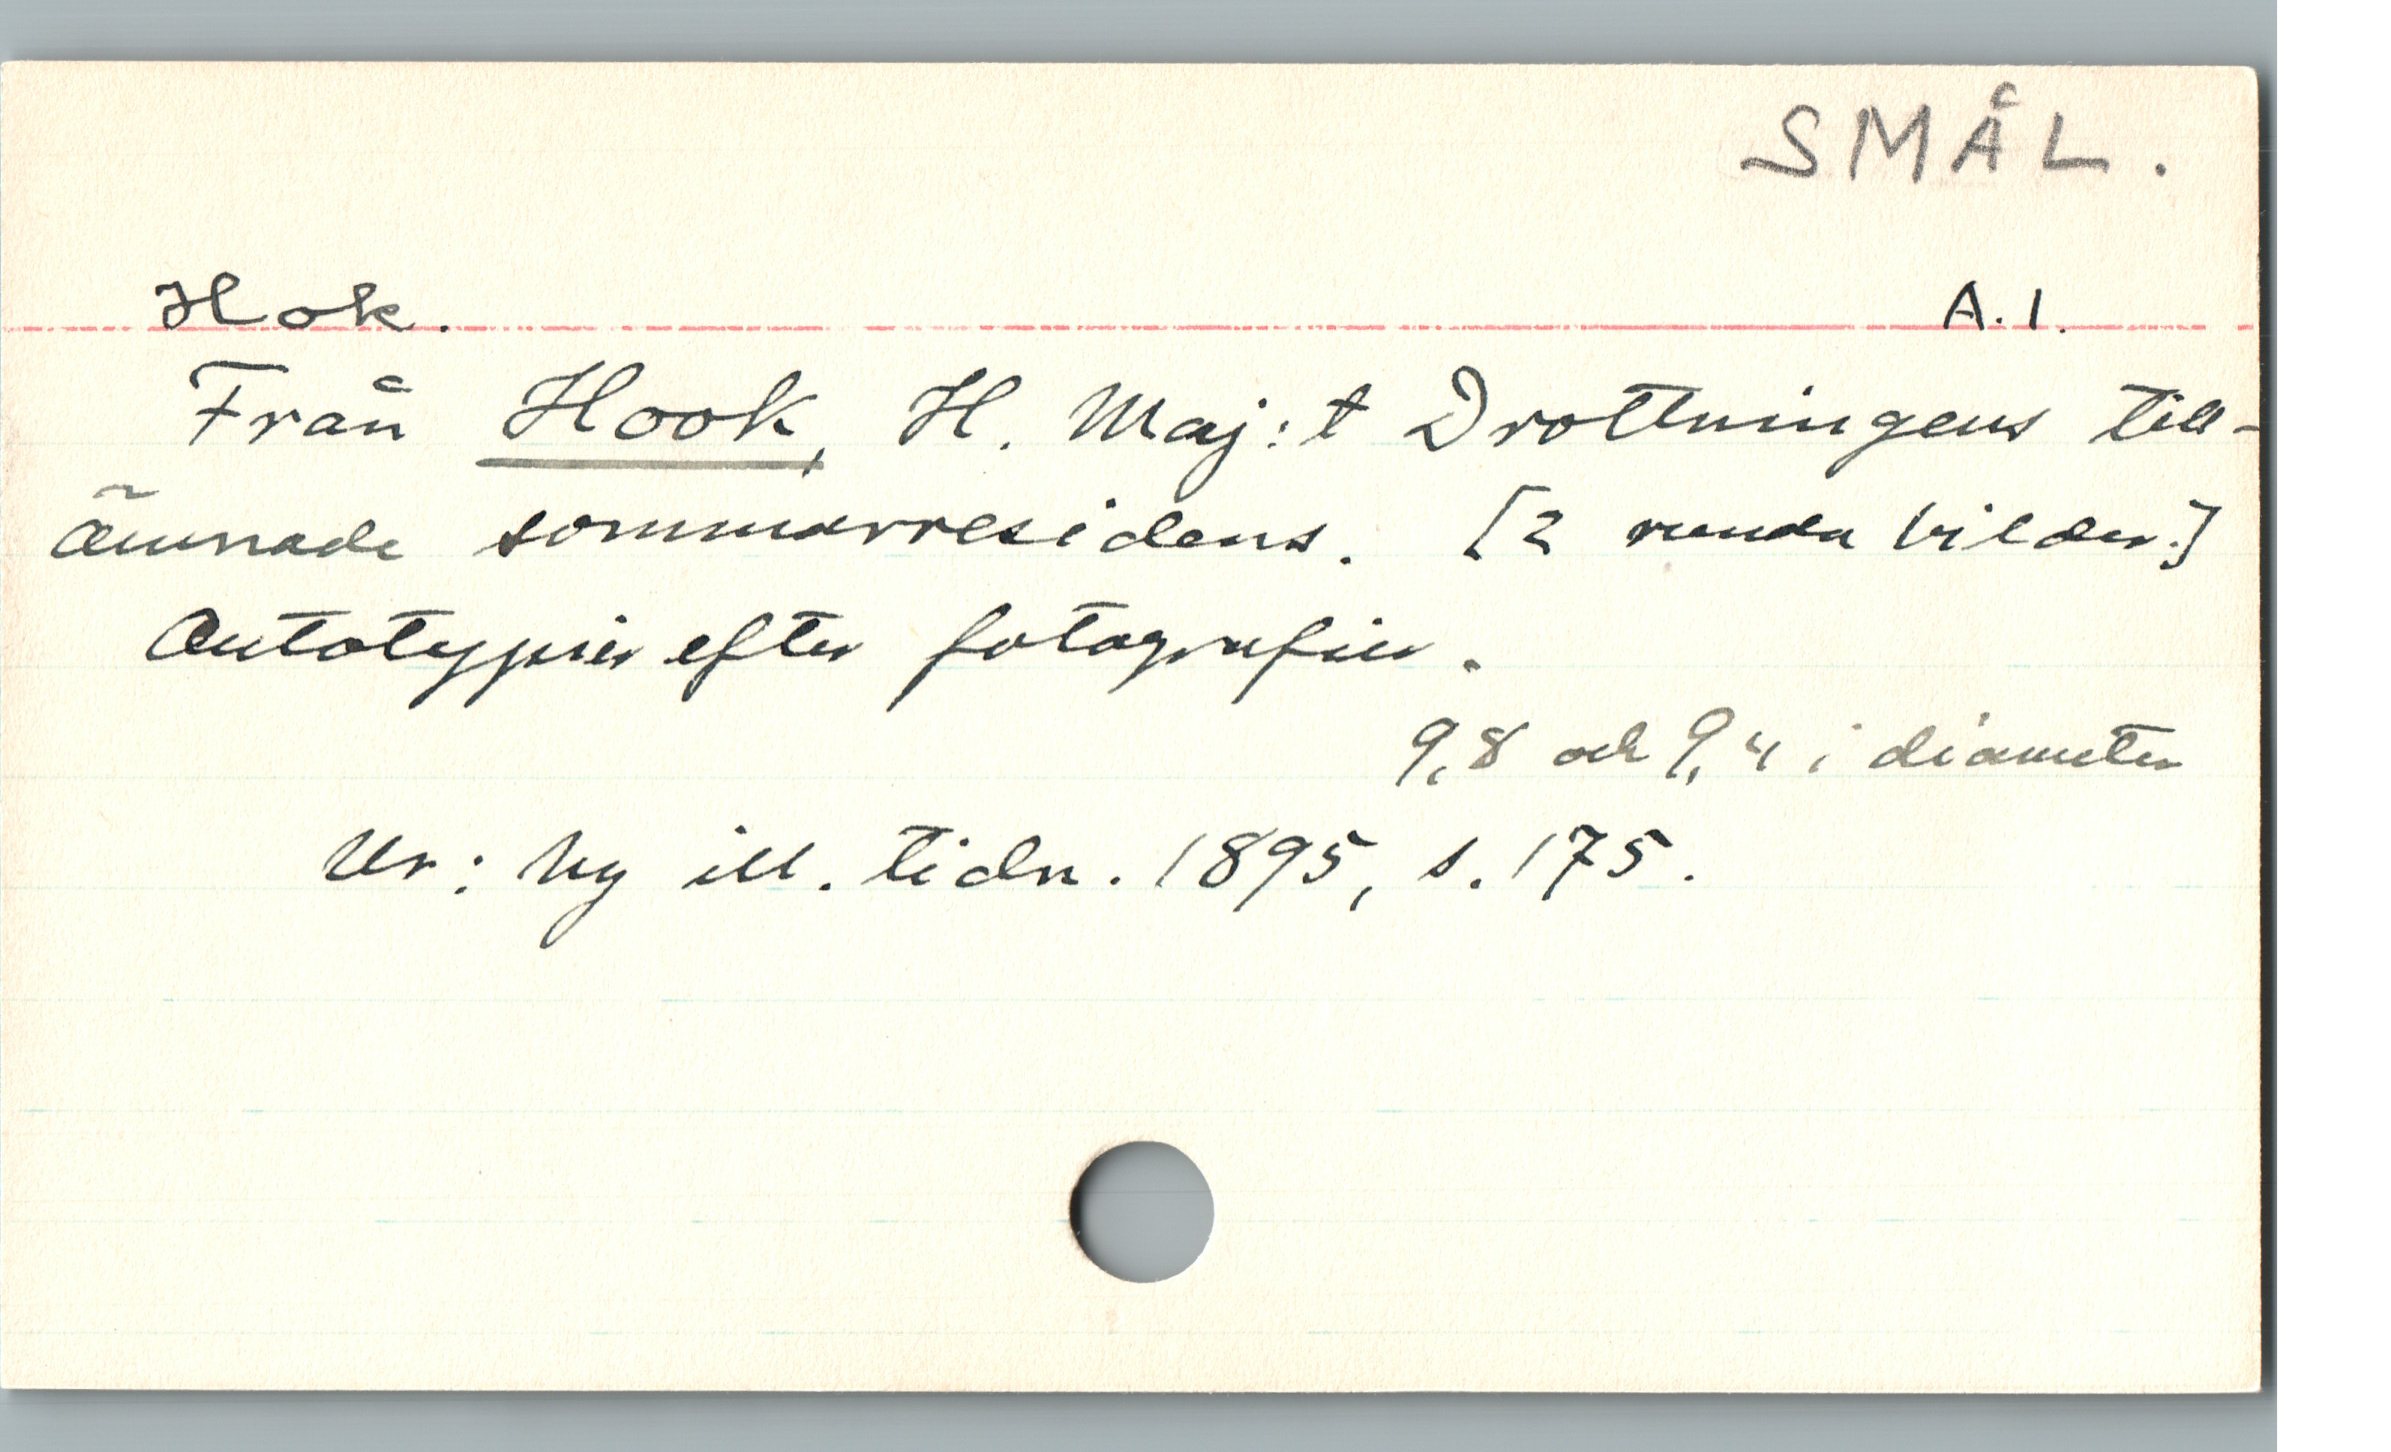 SMÅL.
Hok. A.1.
Från Hook, H. Maj:t Drottningens till-
ämnade sommarresidens. [2 runda bilder.]
Autotypier efter fotografier.
9,8 och 9,4 i diameter
Ur: Ny ill. tidn. 1895, s. 175.